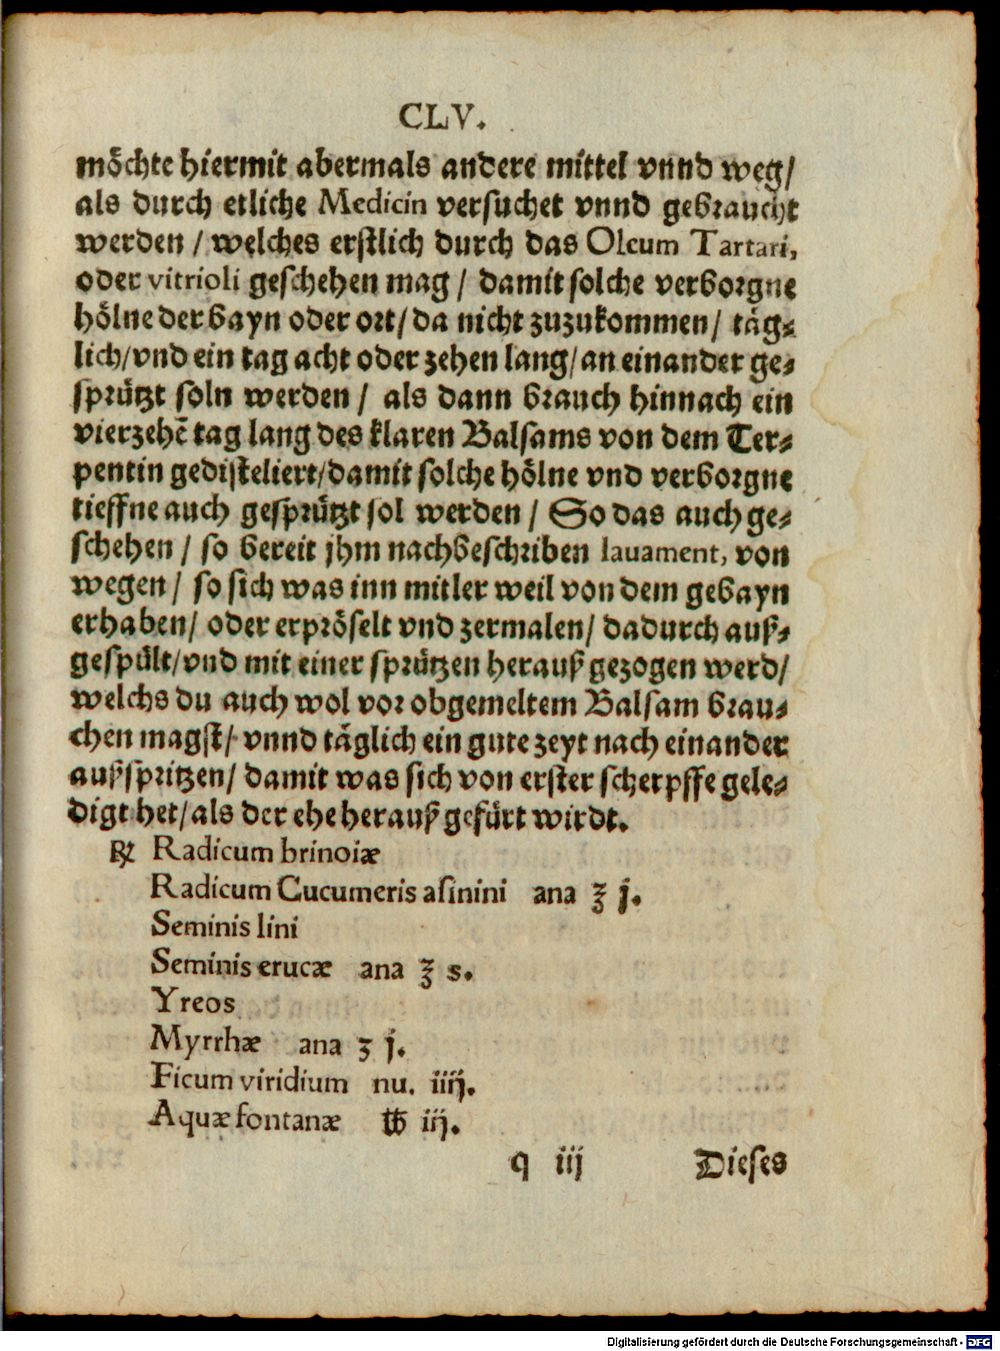 CLV.
möchte hiermit abermals andere mittel vnnd weg/
als durch etliche Medicin versuchet vnnd gebraucht
werden / welches erstlich durch das Oleum Tartari,
oder vitrioli geschehen mag / damit solche verborgne
hölne der bayn oder ort/ da nicht zuzukommen/ täg⸗
lich/ vnd ein tag acht oder zehen lang/ an einander ge⸗
sprützt soln werden / als dann brauch hinnach ein
vierzehē tag lang des klaren Balsams von dem Ter⸗
pentin gedisteliert/ damit solche hölne vnd verborgne
tieffne auch gesprützt sol werden / So das auch ge⸗
schehen / so bereit jhm nachbeschriben lauament, von
wegen / so sich was inn mitler weil von dem gebayn
erhaben/ oder erpröselt vnd zermalen/ dadurch auß⸗
gespült/ vnd mit einer sprützen herauß gezogen werd/
welchs du auch wol vor obgemeltem Balsam brau⸗
chen magst/ vnnd täglich ein gute zeyt nach einander
außspritzen/ damit was sich von erster scherpffe gele⸗
digt het/ als der ehe herauß gefürt wirdt.
℞ Radicum brinoiæ
Radicum Cucumeris asinini ana ℥ j.
Seminis lini
Seminis erucæ ana ℥ s.
Yreos
Myrrhæ ana ʒ j.
Ficum viridium nu. iiij.
Aquæ fontanæ ℔ iij.
q iij Dieses
Digitalisierung gefördert durch die Deutsche Forschungsgemeinschaft - DFG